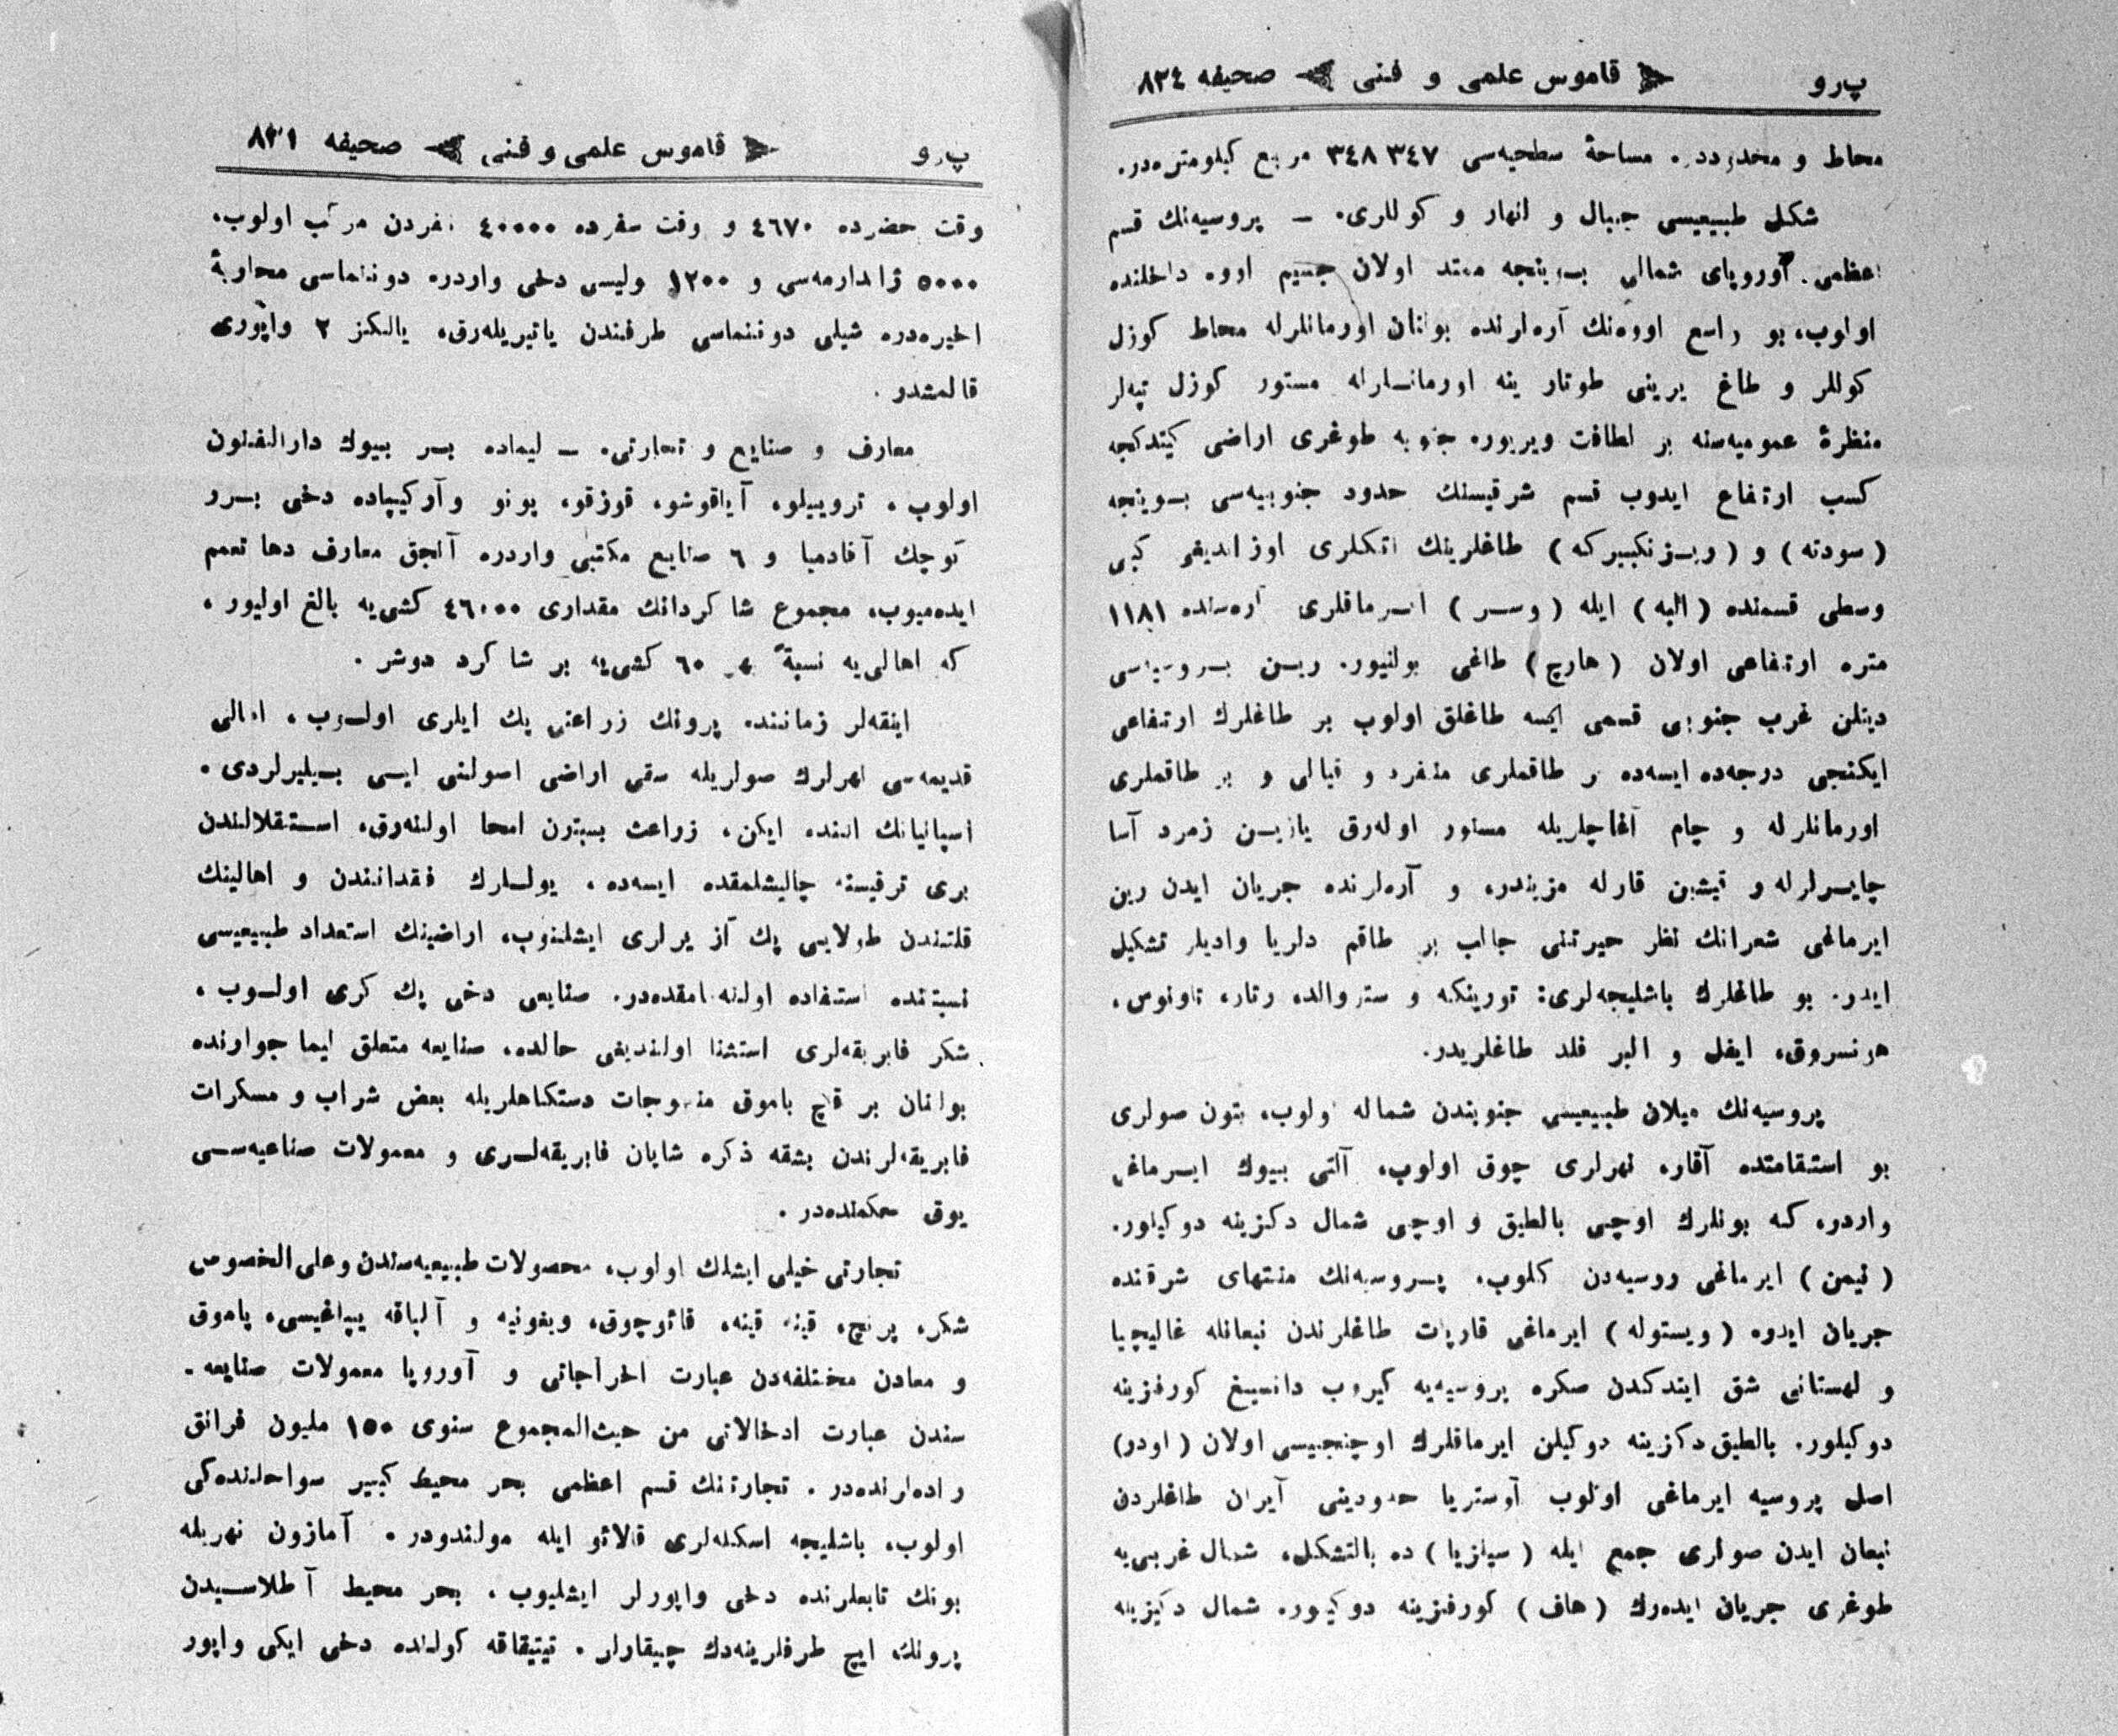 پ‌رو قاموس علمی و فنی صحیفه ٨٣٤
محاط و محدوددر. مساحهٔ سطحیه‌سی ٣٤٧ ٣٤٨ مربع کیلومتره‌در.
شکل طبیعیسی جبال و انهار و کوللری. — پروسیه‌نك قسم
اعظمی. آوروپای شمالی بوینجه ممتد اولان جسیم اووه داخلنده
اولوب، بو واسع اووه‌نك آره‌لرنده بولنان اورمانلرله محاط کوزل
کوللر و طاغ یرینی طوتار ینه اورمانلرله مستور کوزل تپه‌لر
منظرهٔ عمومیه‌سنه بر لطافت ویریور. جنوبه طوغری اراضی کیتدکجه
کسب ارتفاع ایدوب قسم شرقیسنك حدود جنوبیه‌سی بوینجه
(سودته) و (ریزنکبیرکه) طاغلرینك اتکلری اوزاندیغی کبی
وسطی قسمنده (البه) ایله (وسر) ایرماقلری آره‌سنده ١١٨١
متره ارتفاعی اولان (هارچ) طاغی بولنیور. رین پروسیاسی
دینلن غرب جنوبی قسمی ایسه طاغلق اولوب بر طاغلرك ارتفاعی
ایکنجی درجه‌ده ایسه‌ده بر طاقملری منفرد و قیالی و بر طاقملری
اورمانلرله و چام آغاجلریله مستور اوله‌رق یازین زمرد آسا
چایرلرله و قیشین قارله مزیندر، و آره‌لرنده جریان ایدن رین
ایرماغی شعرانك نظر حیرتنی جالب بر طاقم دلربا وادیلر تشکیل
ایدر. بو طاغلرك باشلیجه‌لری: تورینکه و ستروالد، رتار، تاونوس،
هونسروق، ایفل و البر فلد طاغلریدر.
پروسیه‌نك میلان طبیعیسی جنوبندن شماله اولوب، بتون صولری
بو استقامتده آقار. نهرلری چوق اولوب، آلتی بیوك ایرماغی
واردر، که بونلرك اوچی بالطیق و اوچی شمال دکزینه دوکیلور.
(نیمن) ایرماغی روسیه‌دن کلوب، پروسیه‌نك منتهای شرقنده
جریان ایدر. (ویستوله) ایرماغی قارپات طاغلرندن نبعانله غالیچیا
و لهستانی شق ایتدکدن صکره پروسیه‌یه کیروب دانسیغ کورفزینه
دوکیلور. بالطیق دکزینه دوکیلن ایرماقلرك اوچنجیسی اولان (اودر)
اصل پروسیه ایرماغی اولوب آوستریا حدودینی آیران طاغلردن
نبعان ایدن صولری جمع ایله (سیلزیا) ده بالتشکل، شمال غربی‌یه
طوغری جریان ایده‌رك (هاف) کورفزینه دوکیلور. شمال دکیزینه
پ‌رو قاموس علمی و فنی صحیفه ٨٣١
وقت حضرده ٤٦٧٠ و وقت سفرده ٤٠٠٠٠ نفردن مرکب اولوب،
٥٠٠٠ ژاندارمه‌سی و ١٢٠٠ پولیسی دخی واردر. دوننماسی محاربهٔ
اخیره‌ده شیلی دوننماسی طرفندن یاتیریله‌رق، یالکز ٢ واپوری
قالمشدر.
معارف و صنایع و تجارتی. — لیماده بر بیوك دارالفنون
اولوب، تروییلو، آیاقوشو، قوزقو، پونو وآرکیپاده دخی برر
کوچك آقادمیا و ٦ صنایع مکتبی واردر. آنجق معارف دها تعمم
ایده‌میوب، مجموع شاکردانك مقداری ٤٦٠٠٠ کشی‌یه بالغ اولیور،
که اهالی‌یه نسبةً هر ٦٠ کشی‌یه بر شاکرد دوشر.
اینقه‌لر زماننده پرونك زراعتی پك ایلری اولوب، اهالی
قدیمه‌سی نهرلرك صولریله سقی اراضی اصولنی ایی بیلیرلردی.
اسپانیانك النده ایکن، زراعت بسبتون امحا اولنه‌رق، استقلالندن
بری ترقیسنه چالیشلمقده ایسه‌ده، یوللرك فقدانندن و اهالینك
قلتندن طولایی پك آز یرلری ایشلنوب، اراضینك استعداد طبیعیسی
نسبتنده استفاده اولنه‌مامقده‌در. صنایعی دخی پك کری اولوب،
شکر فابریقه‌لری استثنا اولندیغی حالده، صنایعه متعلق لیما جوارنده
بولنان بر قاچ پاموق منسوجات دستکاهلریله بعض شراب و مسکرات
فابریقه‌لرندن بشقه ذکره شایان فابریقه‌لری و معمولات صناعیه‌سی
یوق حکمنده‌در.
تجارتی خیلی ایشلك اولوب، محصولات طبیعیه‌سندن وعلی‌الخصوص
شکر، پرنچ، قینه قینه، قاؤچوق، ویغونیه و آلپاقه یپاغیسی، پاموق
و معادن مختلفه‌دن عبارت اخراجاتی و آوروپا معمولات صنایعه‌-
سندن عبارت ادخالاتی من حیث‌المجموع سنوی ١٥٠ ملیون فرانق
راده‌لرنده‌در. تجارتنك قسم اعظمی بحر محیط کبیر سواحلنده‌کی
اولوب، باشلیجه اسکله‌لری قالاؤ ایله مولندودر. آمازون نهریله
بونك تابعلرنده دخی واپورلر ایشلیوب، بحر محیط آطلاسیدن
پرونك ایچ طرفلرینه‌دك چیقارلر. تیتیقاقه کولنده دخی ایکی واپور